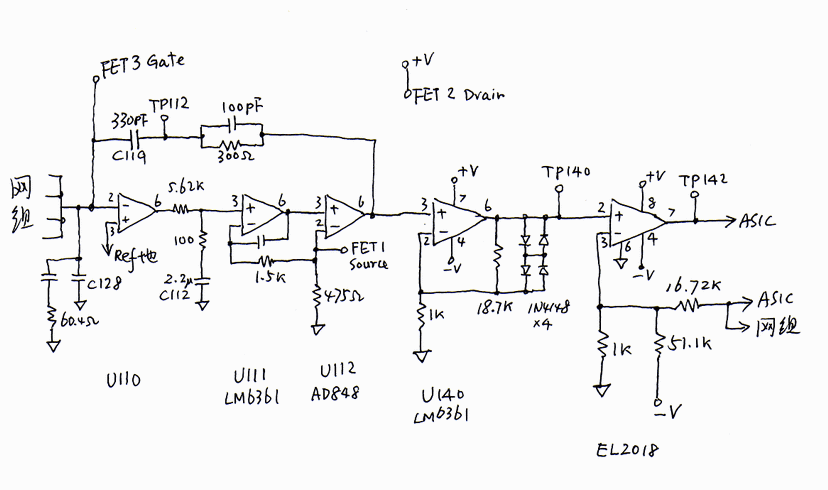 FET3 Gate
+V
FET2 Drain
330PF
TP112
100PF
C119
300Ω
网
组
2
6
5.62K
3
6
3
6
3
7
6
TP140
2
8
7
TP142
ASIC
+V
+V
3
Ref地
100
2
2
4
-V
3
6
4
-V
FET1
Source
C128
2.2μ
C112
1.5K
475Ω
60.4Ω
1K
18.7K
1N4148
×4
16.72K
ASIC
网组
1K
51.1K
-V
U110
U111
LM6361
U112
AD848
U140
LM6361
EL2018